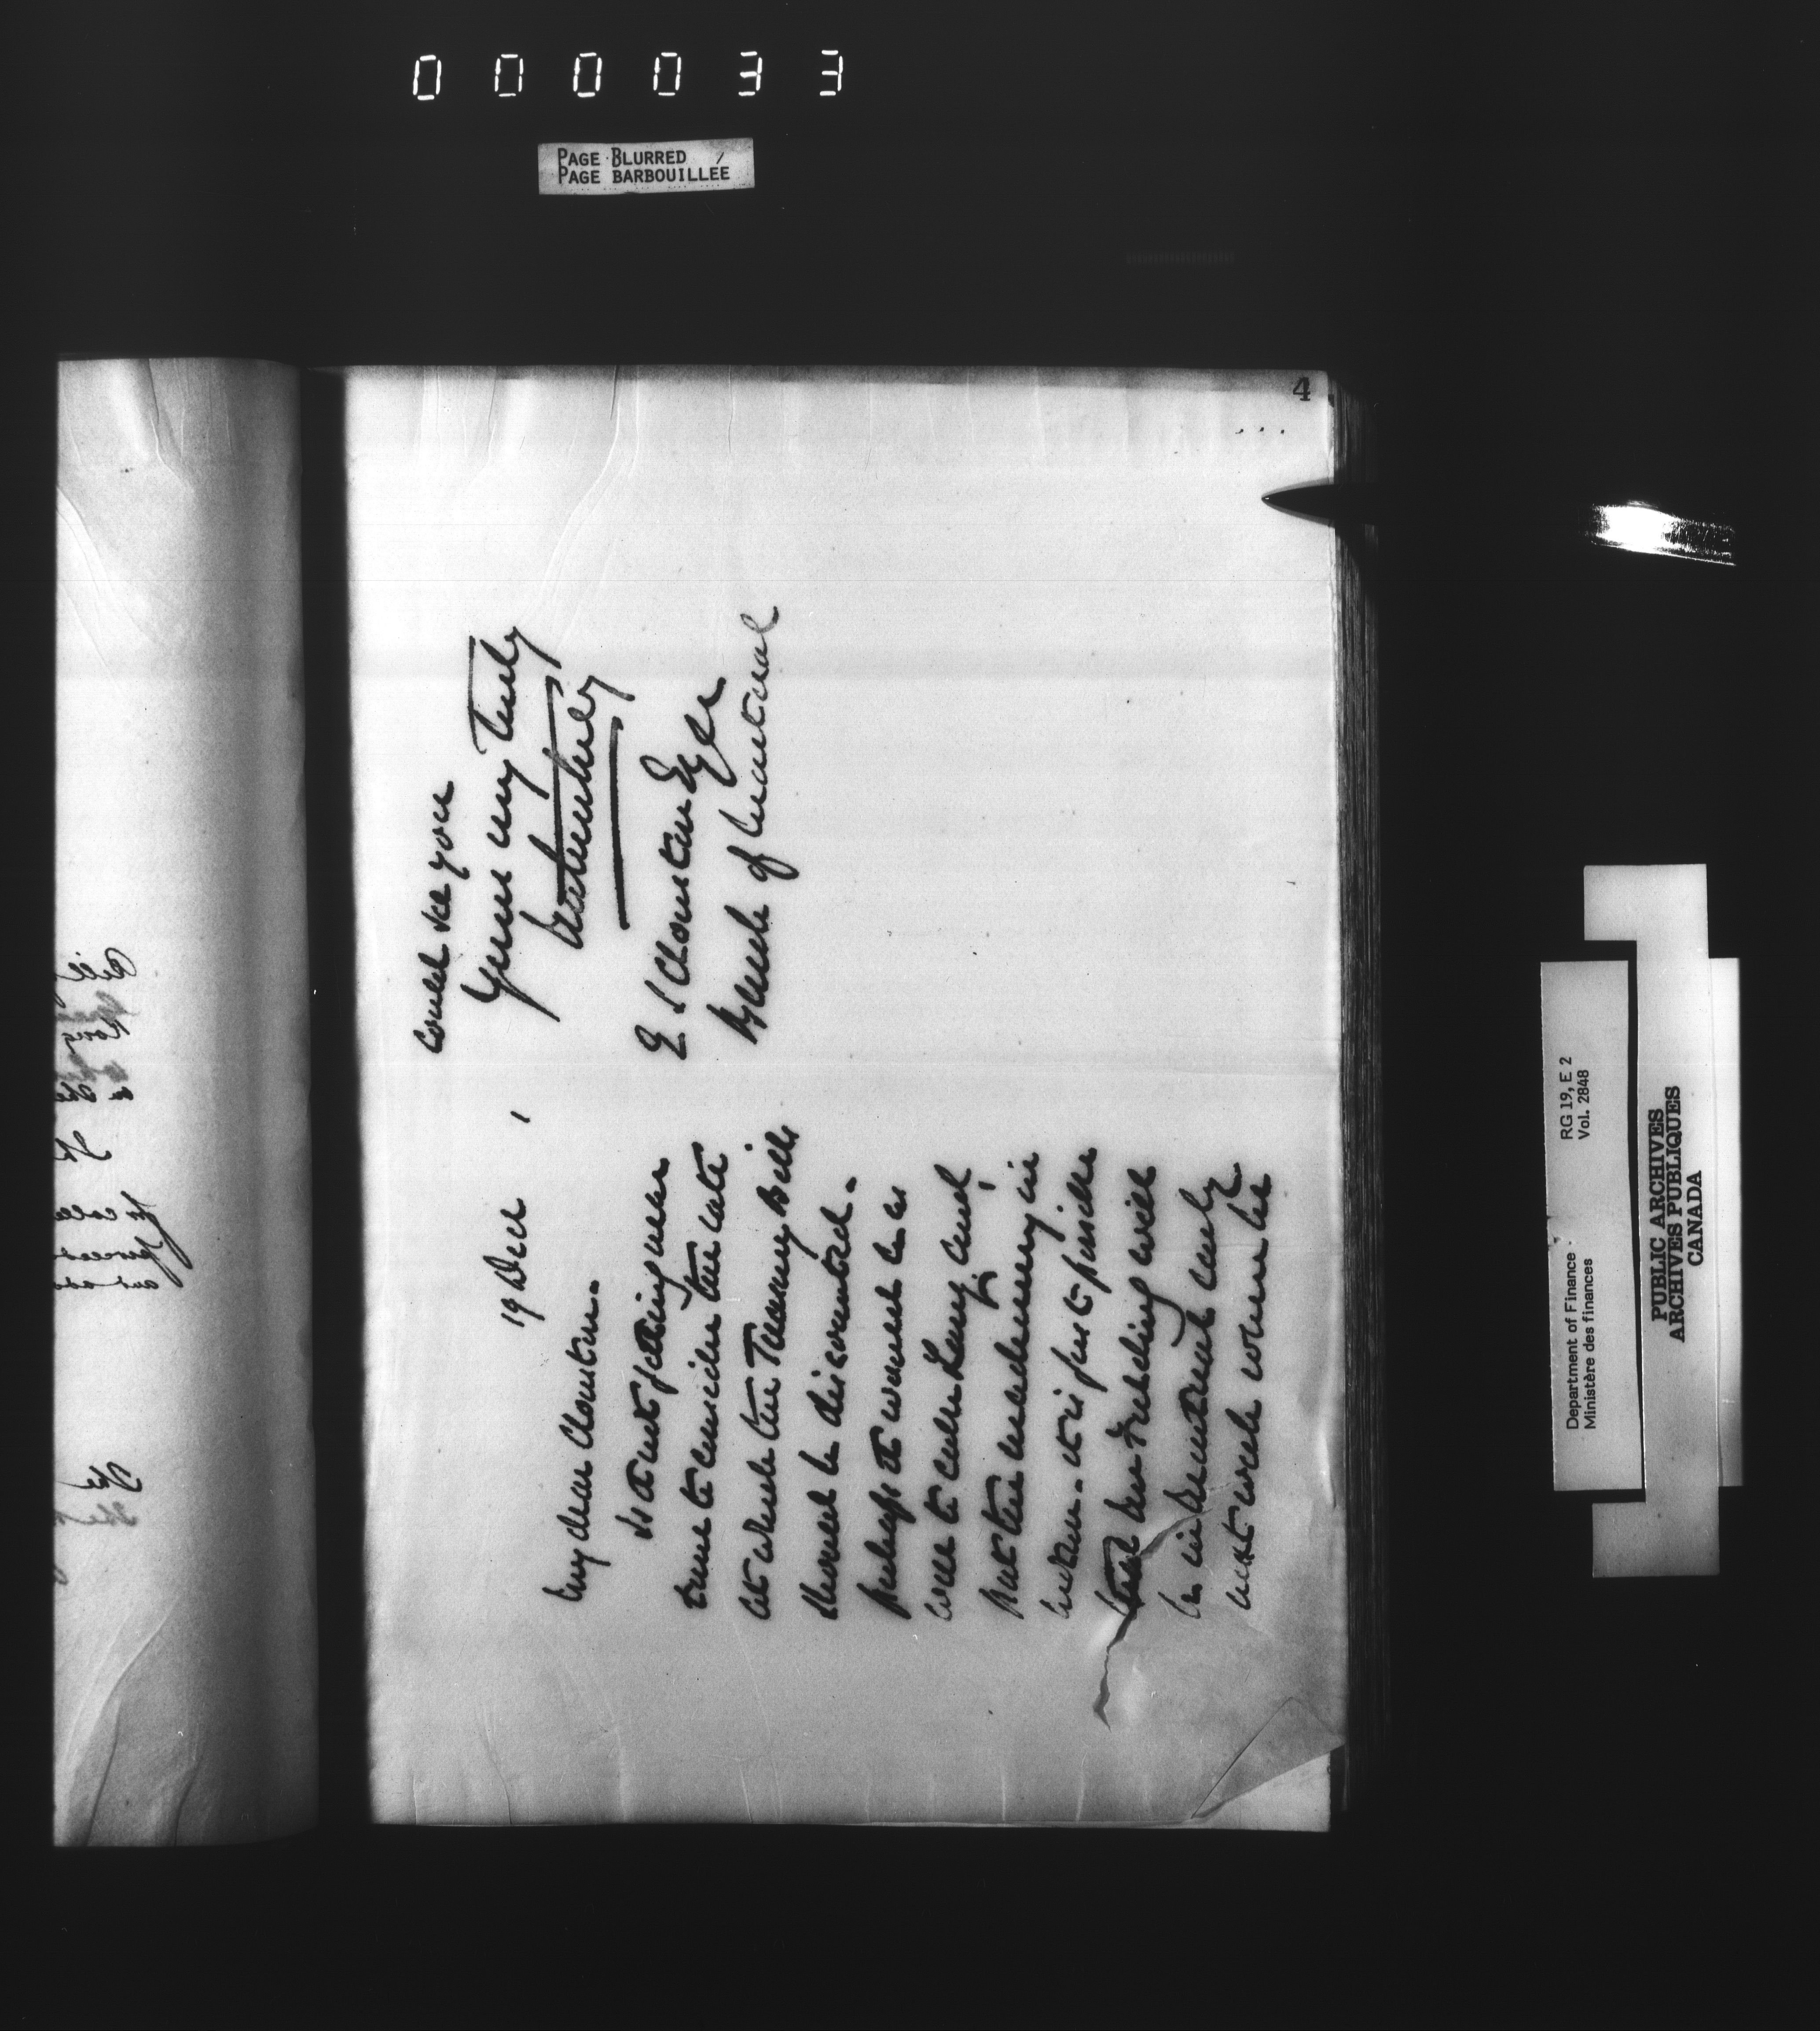 000033
PAGE BLURRED
PAGE BARBOUILLÉE
4
19 Dec
My dear Clouston.
Is it not getting near
time to consider the rate
at which the Treasury Bills
should be discounted.
perhaps it would be as
well to call Long and
put the machinery in
motion. it is just possible
that Mr Fielding will
be in Montreal early
next week when he
could see you
Yours very truly
E S Clouston Esqr
Bank of Montreal
Department of Finance
Ministère des finances
RG 19, E 2
Vol. 2848
PUBLIC ARCHIVES
ARCHIVES PUBLIQUES
CANADA